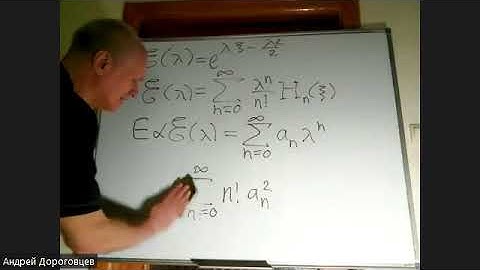 ℰ(λ)=e^{λξ - λ²/2}
ℰ(λ)=∑_{n=0}^{∞} λⁿ/n! Hₙ(ξ)
Eαℰ(λ)=∑_{n=0}^{∞} aₙλⁿ
∞ n=0 n! aₙ²
Андрей Дороговцев